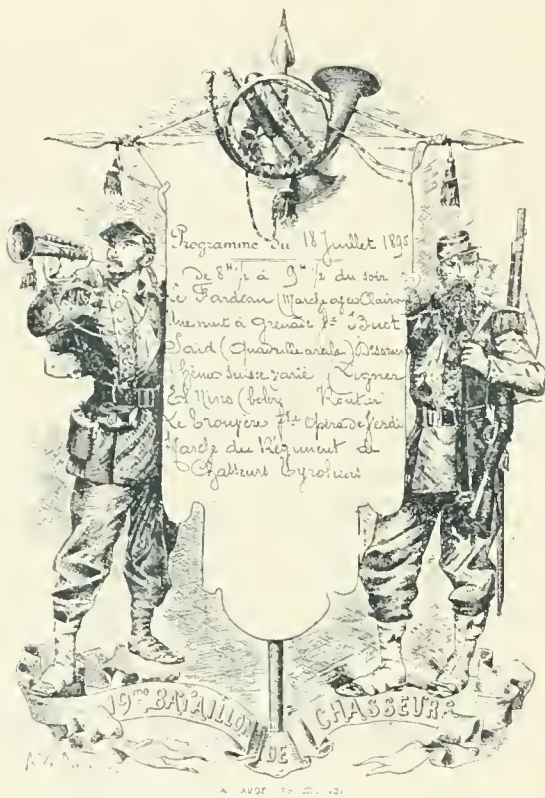 Programme du 18 Juillet 1895
De 8 H ½ à 9 H ½ du soir
Le Fardeau (Marche avec Clairons
Une nuit à Grenade Fie Buot
Saïd (Quadrille arabe)
Thème suisse varié
El Nino (boléro
Le Trouvère Fie Opéra de Verdi
Marche du Régiment de
Chasseurs Tyroliens
19me BATAILLON DE CHASSEURS